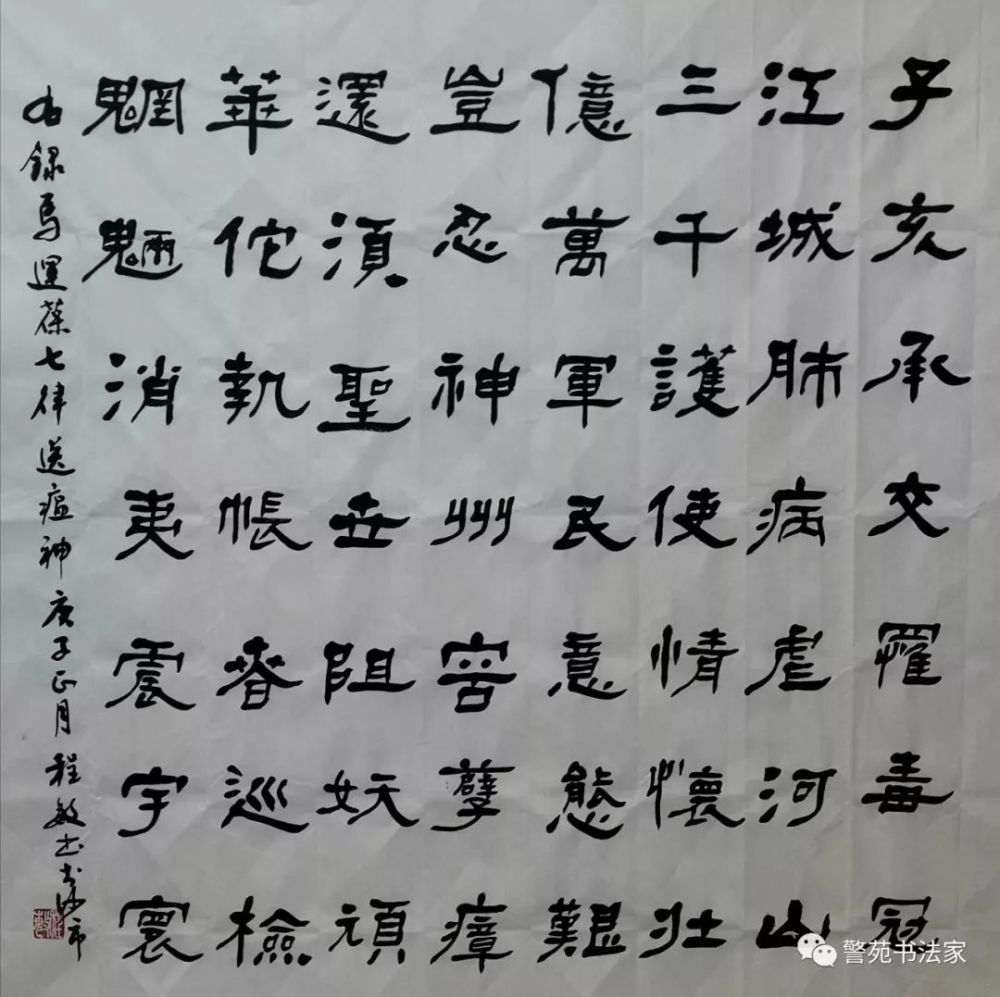 子亥承交罹毒冠
江城肺病虐河山
三千護使情懷壯
億萬軍民意態艱
豈忍神州害孽瘴
還須聖世阻妖頑
華佗執帳春巡檢
魍魎消夷震宇寰
右錄馬運葆七律送瘟神庚子正月程敏书於沙市
警苑书法家